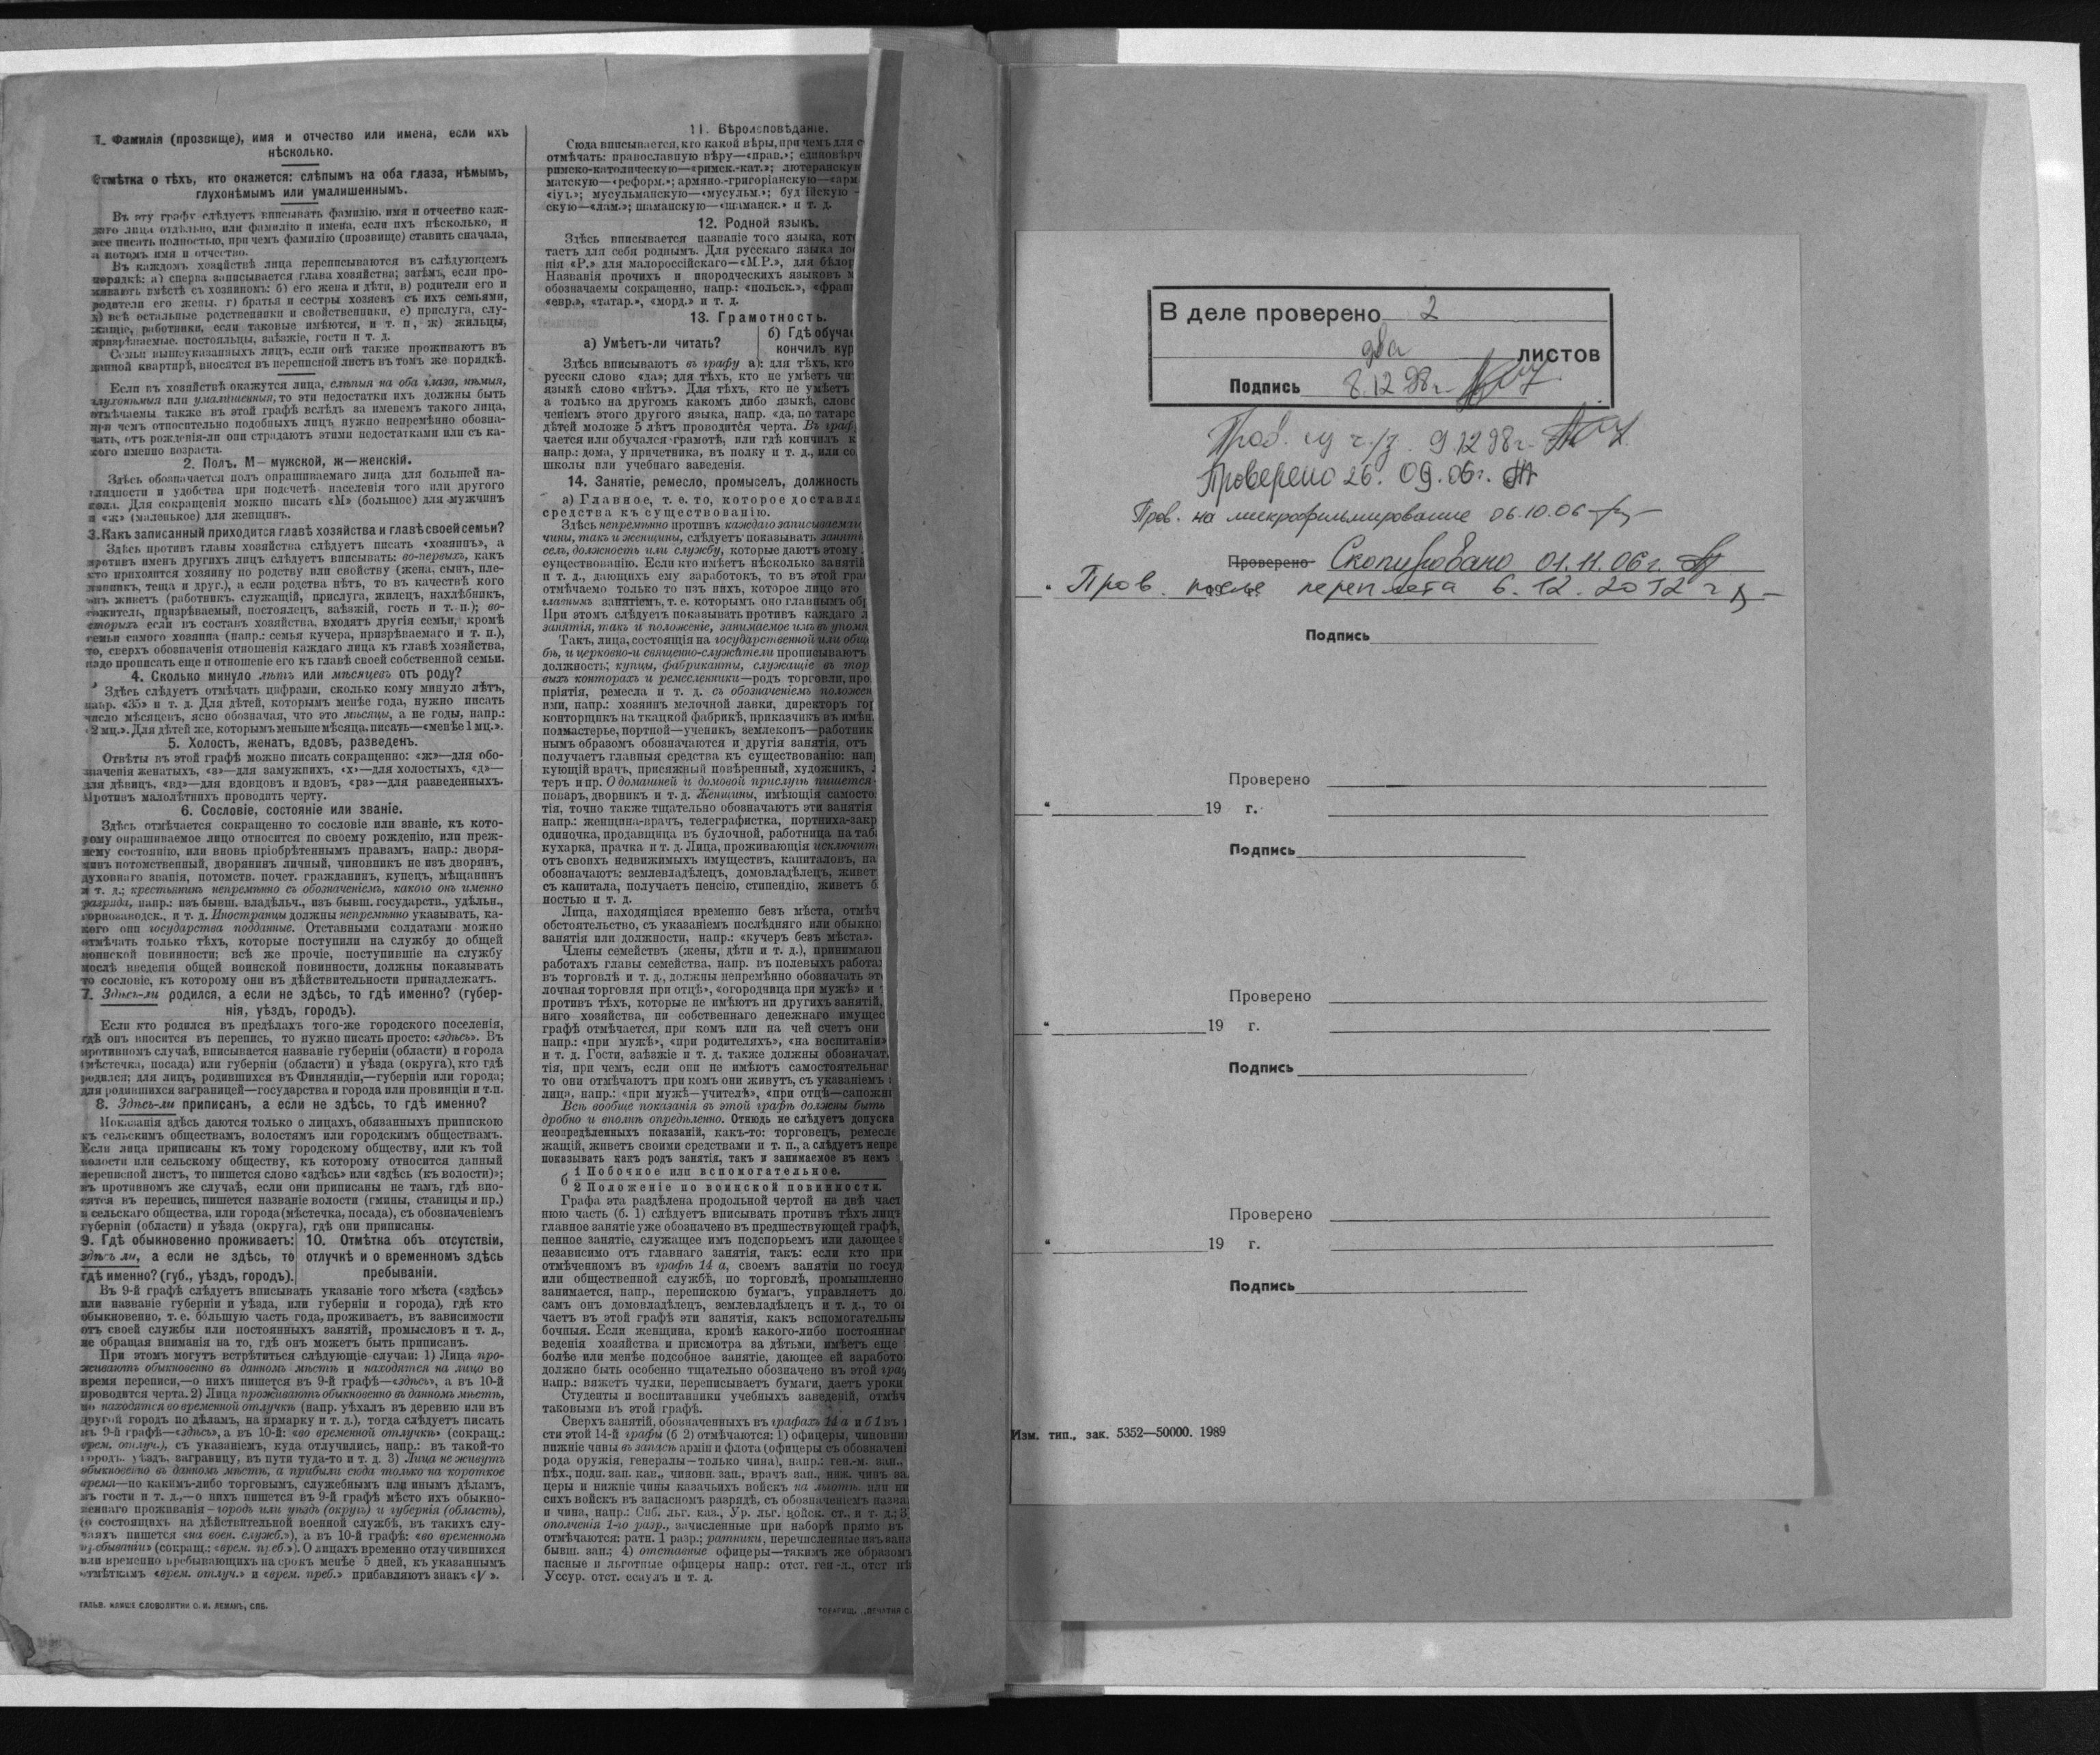 1. Фамилія (прозвище), имя и отчество или имена, если ихъ
нѣсколько.
Отмѣтка о тѣхъ, кто окажется: слѣпымъ на оба глаза, нѣмымъ,
глухонѣмымъ или умалишеннымъ.
Въ эту графу слѣдуетъ вписывать фамилію, имя и отчество каж-
даго лица отдѣльно, или фамилію и имена, если ихъ нѣсколько, и
все писать полностью, при чемъ фамилію (прозвище) ставить сначала,
а потомъ имя и отчество.
Въ каждомъ хозяйствѣ лица переписываются въ слѣдующемъ
порядкѣ: а) сперва записывается глава хозяйства; затѣмъ, если про-
живаютъ вмѣстѣ съ хозяиномъ: б) его жена и дѣти, в) родители его и
родители его жены, г) братья и сестры хозяевъ съ ихъ семьями,
д) всѣ остальные родственники и свойственники, е) прислуга, слу-
жащіе, работники, если таковые имѣются, и т. п, ж) жильцы,
призрѣваемые, постояльцы, заѣзжіе, гости и т. д.
Семьи вышеуказанныхъ лицъ, если онѣ также проживаютъ въ
данной квартирѣ, вносятся въ переписной листъ въ томъ же порядкѣ.
Если въ хозяйствѣ окажутся лица, слѣпыя на оба глаза, нѣмыя,
глухонѣмыя или умалишенныя, то эти недостатки ихъ должны быть
отмѣчаемы также въ этой графѣ вслѣдъ за именемъ такого лица,
при чемъ относительно подобныхъ лицъ нужно непремѣнно обозна-
чать, отъ рожденія-ли они страдаютъ этими недостатками или съ ка-
кого именно возраста.
2. Полъ. М—мужской, ж—женскій.
Здѣсь обозначается полъ опрашиваемаго лица для большей на-
глядности и удобства при подсчетѣ населенія того или другого
пола. Для сокращенія можно писать «М» (большое) для мужчинъ
и «ж» (маленькое) для женщинъ.
3. Какъ записанный приходится главѣ хозяйства и главѣ своей семьи?
Здѣсь противъ главы хозяйства слѣдуетъ писать «хозяинъ», а
противъ именъ другихъ лицъ слѣдуетъ вписывать: во-первыхъ, какъ
кто приходится хозяину по родству или свойству (жена, сынъ, пле-
мянникъ, теща и друг.), а если родства нѣтъ, то въ качествѣ кого
онъ живетъ (работникъ, служащій, прислуга, жилецъ, нахлѣбникъ,
сожитель, призрѣваемый, постоялецъ, заѣзжій, гость и т. п.); во-
вторыхъ если въ составъ хозяйства, входятъ другія семьи, кромѣ
семьи самого хозяина (напр.: семья кучера, призрѣваемаго и т. п.),
то, сверхъ обозначенія отношенія каждаго лица къ главѣ хозяйства,
надо прописать еще и отношеніе его къ главѣ своей собственной семьи.
4. Сколько минуло лѣтъ или мѣсяцевъ отъ роду?
Здѣсь слѣдуетъ отмѣчать цифрами, сколько кому минуло лѣтъ,
напр. «35» и т. д. Для дѣтей, которымъ менѣе года, нужно писать
число мѣсяцевъ, ясно обозначая, что это мѣсяцы, а не годы, напр.:
«2 мц.». Для дѣтей же, которымъ меньше мѣсяца, писать—«менѣе 1 мц.».
5. Холостъ, женатъ, вдовъ, разведенъ.
Отвѣты въ этой графѣ можно писать сокращенно: «ж»—для обо-
значенія женатыхъ, «з»—для замужнихъ, «х»—для холостыхъ, «д»—
для дѣвицъ, «вд»—для вдовцовъ и вдовъ, «рз»—для разведенныхъ.
Противъ малолѣтнихъ проводить черту.
6. Сословіе, состояніе или званіе.
Здѣсь отмѣчается сокращенно то сословіе или званіе, къ кото-
рому опрашиваемое лицо относится по своему рожденію, или преж-
нему состоянію, или вновь пріобрѣтеннымъ правамъ, напр.: дворя-
нинъ потомственный, дворянинъ личный, чиновникъ не изъ дворянъ,
духовнаго званія, потомств. почет. гражданинъ, купецъ, мѣщанинъ
и т. д.; крестьянинъ непремѣнно съ обозначеніемъ, какого онъ именно
разряда, напр.: изъ бывш. владѣльч., изъ бывш. государств., удѣльн.,
горнозаводск., и т. д. Иностранцы должны непремѣнно указывать, ка-
кого они государства подданные. Отставными солдатами можно
отмѣчать только тѣхъ, которые поступили на службу до общей
воинской повинности; всѣ же прочіе, поступившіе на службу
послѣ введенія общей воинской повинности, должны показывать
то сословіе, къ которому они въ дѣйствительности принадлежатъ.
7. Здѣсь-ли родился, а если не здѣсь, то гдѣ именно? (губер-
нія, уѣздъ, городъ).
Если кто родился въ предѣлахъ того-же городского поселенія,
гдѣ онъ вносится въ перепись, то нужно писать просто: «здѣсь». Въ
противномъ случаѣ, вписывается названіе губерніи (области) и города
(мѣстечка, посада) или губерніи (области) и уѣзда (округа), кто гдѣ
родился; для лицъ, родившихся въ Финляндіи,—губерніи или города;
для родившихся заграницей—государства и города или провинціи и т.п.
8. Здѣсь-ли приписанъ, а если не здѣсь, то гдѣ именно?
Показанія здѣсь даются только о лицахъ, обязанныхъ припискою
къ сельскимъ обществамъ, волостямъ или городскимъ обществамъ.
Если лица приписаны къ тому городскому обществу, или къ той
волости или сельскому обществу, къ которому относится данный
переписной листъ, то пишется слово «здѣсь» или «здѣсь (къ волости)»;
въ противномъ же случаѣ, если они приписаны не тамъ, гдѣ вно-
сятся въ перепись, пишется названіе волости (гмины, станицы и пр.)
и сельскаго общества, или города (мѣстечка, посада), съ обозначеніемъ
губерніи (области) и уѣзда (округа), гдѣ они приписаны.
9. Гдѣ обыкновенно проживаетъ:
здѣсь ли, а если не здѣсь, то
гдѣ именно? (губ., уѣздъ, городъ).
10. Отмѣтка объ отсутствіи,
отлучкѣ и о временномъ здѣсь
пребываніи.
Въ 9-й графѣ слѣдуетъ вписывать указаніе того мѣста («здѣсь»
или названіе губерніи и уѣзда, или губерніи и города), гдѣ кто
обыкновенно, т. е. большую часть года, проживаетъ, въ зависимости
отъ своей службы или постоянныхъ занятій, промысловъ и т. д.,
не обращая вниманія на то, гдѣ онъ можетъ быть приписанъ.
При этомъ могутъ встрѣтиться слѣдующіе случаи: 1) Лица про-
живаютъ обыкновенно въ данномъ мѣстѣ и находятся на лицо во
время переписи,—о нихъ пишется въ 9-й графѣ—«здѣсь», а въ 10-й
проводится черта. 2) Лица проживаютъ обыкновенно въ данномъ мѣстѣ,
но находятся во временной отлучкѣ (напр. уѣхалъ въ деревню или въ
другой городъ по дѣламъ, на ярмарку и т. д.), тогда слѣдуетъ писать
въ 9-й графѣ—«здѣсь», а въ 10-й: «во временной отлучкѣ» (сокращ.:
врем. отлуч.), съ указаніемъ, куда отлучились, напр.: въ такой-то
городъ, уѣздъ, заграницу, въ пути туда-то и т. д. 3) Лица не живутъ
обыкновенно въ данномъ мѣстѣ, а прибыли сюда только на короткое
время—по какимъ-либо торговымъ, служебнымъ или инымъ дѣламъ,
въ гости и т. д.,—о нихъ пишется въ 9-й графѣ мѣсто ихъ обыкно-
веннаго проживанія—городъ или уѣздъ (округъ) и губернія (область),
(о состоящихъ на дѣйствительной военной службѣ, въ такихъ слу-
чаяхъ пишется «на воен. служб.»), а въ 10-й графѣ: «во временномъ
пребываніи» (сокращ.: «врем. преб.»). О лицахъ временно отлучившихся
или временно пребывающихъ на срокъ менѣе 5 дней, къ указаннымъ
отмѣткамъ «врем. отлуч.» и «врем. преб.» прибавляютъ знакъ «V».
ГАЛЬВ. КЛИШЕ СЛОВОЛИТНИ О. И. ЛЕМАНЪ, СПБ.
11. Вѣроисповѣданіе.
Сюда вписывается, кто какой вѣры, при чемъ для с
отмѣчать: православную вѣру—«прав.»; единовѣрч
римско-католическую—«римск.-кат.»; лютеранскую
матскую—«реформ.»; армяно-григоріанскую—«арм
«іуд.»; мусульманскую—«мусульм.»; буддійскую —
скую—«лам.»; шаманскую—«шаманск.» и т. д.
12. Родной языкъ.
Здѣсь вписывается названіе того языка, кото
таетъ для себя роднымъ. Для русскаго языка до
нія «Р.» для малороссійскаго—«М.Р.», для бѣлор
Названія прочихъ и инородческихъ языковъ м
обозначаемы сокращенно, напр.: «польск.», «фран
«евр.», «татар.», «морд.» и т. д.
13. Грамотность.
а) Умѣетъ-ли читать?
б) Гдѣ обуча
кончилъ кур
Здѣсь вписываютъ въ графу а): для тѣхъ, кто
русски слово «да»; для тѣхъ, кто не умѣетъ чи
языкѣ слово «нѣтъ». Для тѣхъ, кто не умѣетъ
а только на другомъ какомъ либо языкѣ, слово
ченіемъ этого другого языка, напр. «да, по татарс
дѣтей моложе 5 лѣтъ проводится черта. Въ граф
чается или обучался грамотѣ, или гдѣ кончилъ к
напр.: дома, у причетника, въ полку и т. д., или со
школы или учебнаго заведенія.
14. Занятіе, ремесло, промыселъ, должность
а) Главное, т. е. то, которое доставля
средства къ существованію.
Здѣсь непремѣнно противъ каждаго записываемаго
чины, такъ и женщины, слѣдуетъ показывать заняті
селъ, должность или службу, которые даютъ этому
существованію. Если кто имѣетъ нѣсколько занятій
и т. д., дающихъ ему заработокъ, то въ этой гра
отмѣчаемо только то изъ нихъ, которое лицо это
главнымъ занятіемъ, т. е. которымъ оно главнымъ об
При этомъ слѣдуетъ показывать противъ каждаго л
занятія, такъ и положеніе, занимаемое имъ въ упомя
Такъ, лица, состоящія на государственной или общ
бѣ, и церковно-и священно-служители прописываютъ
должность; купцы, фабриканты, служащіе въ тор
выхъ конторахъ и ремесленники—родъ торговли, про
пріятія, ремесла и т. д. съ обозначеніемъ положен
ими, напр.: хозяинъ мелочной лавки, директоръ го
конторщикъ на ткацкой фабрикѣ, приказчикъ въ имѣн
подмастерье, портной—ученикъ, землекопъ—работник
нымъ образомъ обозначаются и другія занятія, отъ
получаетъ главныя средства къ существованію: нап
кующій врачъ, присяжный повѣренный, художникъ,
теръ и пр. О домашней и домовой прислугѣ пишется
поваръ, дворникъ и т. д. Женщины, имѣющія самосто
тія, точно также тщательно обозначаютъ эти занятія
напр.: женщина-врачъ, телеграфистка, портниха-закр
одиночка, продавщица въ булочной, работница на таб
кухарка, прачка и т. д. Лица, проживающія исключит
отъ своихъ недвижимыхъ имуществъ, капиталовъ, на
обозначаютъ: землевладѣлецъ, домовладѣлецъ, живет
съ капитала, получаетъ пенсію, стипендію, живетъ б
ностью и т. д.
Лица, находящіяся временно безъ мѣста, отмѣч
обстоятельство, съ указаніемъ послѣдняго или обыкно
занятія или должности, напр.: «кучеръ безъ мѣста».
Члены семействъ (жены, дѣти и т. д.), принимаю
работахъ главы семейства, напр. въ полевыхъ работа
въ торговлѣ и т. д., должны непремѣнно обозначать эт
лочная торговля при отцѣ», «огородница при мужѣ» и
противъ тѣхъ, которые не имѣютъ ни другихъ занятій,
няго хозяйства, ни собственнаго денежнаго имущес
графѣ отмѣчается, при комъ или на чей счетъ они
напр.: «при мужѣ», «при родителяхъ», «на воспитаніи»
и т. д. Гости, заѣзжіе и т. д. также должны обозначат
тія, при чемъ, если они не имѣютъ самостоятельнаг
то они отмѣчаютъ при комъ они живутъ, съ указаніемъ
лица, напр.: «при мужѣ—учителѣ», «при отцѣ—сапожн
Всѣ вообще показанія въ этой графѣ должны быть
дробно и вполнѣ опредѣленно. Отнюдь не слѣдуетъ допуска
неопредѣленныхъ показаній, какъ-то: торговецъ, ремесле
жащій, живетъ своими средствами и т. п., а слѣдуетъ непре
показывать какъ родъ занятія, такъ и занимаемое въ немъ
б 1 Побочное или вспомогательное.
2 Положеніе по воинской повинности.
Графа эта раздѣлена продольной чертой на двѣ част
нюю часть (б. 1) слѣдуетъ вписывать противъ тѣхъ лицъ
главное занятіе уже обозначено въ предшествующей графѣ,
пенное занятіе, служащее имъ подспорьемъ или дающее
независимо отъ главнаго занятія, такъ: если кто при
отмѣченномъ въ графѣ 14 а, своемъ занятіи по госуд
или общественной службѣ, по торговлѣ, промышленно
занимается, напр., перепискою бумагъ, управляетъ до
самъ онъ домовладѣлецъ, землевладѣлецъ и т. д., то о
чаетъ въ этой графѣ эти занятія, какъ вспомогательны
бочныя. Если женщина, кромѣ какого-либо постояннаг
веденія хозяйства и присмотра за дѣтьми, имѣетъ еще
болѣе или менѣе подсобное занятіе, дающее ей заработо
должно быть особенно тщательно обозначено въ этой гра
напр.: вяжетъ чулки, переписываетъ бумаги, даетъ уроки
Студенты и воспитанники учебныхъ заведеній, отмѣч
таковыми въ этой графѣ.
Сверхъ занятій, обозначенныхъ въ графахъ 14 а и б 1 въ
сти этой 14-й графы (б 2) отмѣчаются: 1) офицеры, чиновни
нижніе чины въ запасѣ арміи и флота (офицеры съ обозначені
рода оружія, генералы—только чина), напр.: ген.-м. зап.,
пѣх., подп. зап. кав., чиновн. зап., врачъ зап., ниж. чинъ за
церы и нижніе чины казачьихъ войскъ на льготѣ или ни
сихъ войскъ въ запасномъ разрядѣ, съ обозначеніемъ назва
и чина, напр.: Сиб. льг. каз., Ур. льг. войск. ст., и т. д.; 3)
ополченія 1-го разр., зачисленные при наборѣ прямо въ
отмѣчаются: ратн. 1 разр.; ратники, перечисленные изъ запа
бывш. зап.; 4) отставные офицеры—такимъ же образомъ
пасные и льготные офицеры напр.: отст. ген-л., отст пѣ
Уссур. отст. есаулъ и т. д.
ТОВАРИЩ. „ПЕЧАТНЯ С
В деле проверено 2
два листов
Подпись 8.12.98г.
9.12.98г.
Проверено 26.09.06г.
Пров. на микрофильмирование 06.10.06
Проверено Скопировано 01.11.06г.
" Пров. после переплета 6.12.2012г
Подпись
Проверено
" 19 г.
Подпись
Проверено
" 19 г.
Подпись
Проверено
" 19 г.
Подпись
Изм. тип., зак. 5352—50000. 1989